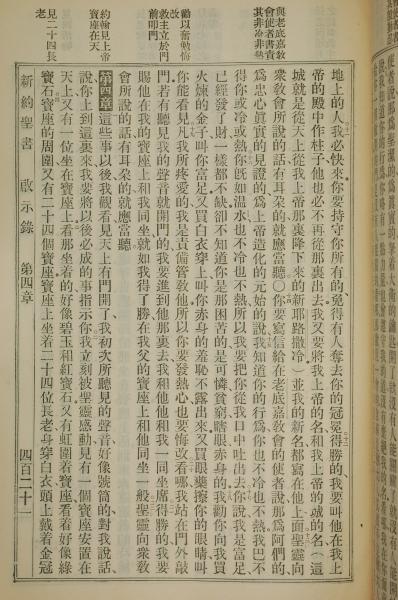 與老底嘉教
會使者書責
其非冷非熱
勸以奮勉悔
改
救主立於門
前叩門
約翰見上帝
寶座在天
見二十四長
老
地上的人我必快來你要持守你所有的免得有人奪去你的冠冕得勝的我要叫他在我上
帝的殿中作柱子他也必不再從那裏出去我又要將上帝的名和我上帝的城的名(這
城就是從天上從我上帝那裏降下來的新耶路撒冷)並我的新名都寫在他上面聖靈向
衆教會所說的話有耳朵的就應當聽〇你要寫信給在老底嘉教會的使者說那爲阿們的
爲忠心眞實的見證的爲上帝造化的元始的說我知道你的行爲你也不冷也不熱我巴不
得你或冷或熱你旣如温水也不冷也不熱所以我要把你從我口中吐出去你說我是富足
已經發了財一樣都不缺却不知道你是那困苦的是可憐貧窮瞎眼赤身的我勸你向我買
火煉的金子叫你富足又買白衣穿上叫你赤身的羞恥不露出來又買眼藥擦你的眼睛叫
你能看見凡我所疼愛的我是責備管敎他所以你要發熱心也要悔改看哪我站在門外敲
門若有聽見我的聲音就開門的我要進到他那裏去我和他他和我一同坐席得勝的我要
賜他在我的寶座上和我同坐就如我得了勝在我父的寶座上和他同坐一般聖靈向衆敎
會所說的話有耳朵的就應當聽
第四章這些事以後我觀看見天上有門開了我初次所聽見的聲音好像號筒的對我說話
說你上到這裏來我要將以後必成的事指示你我立刻被聖靈感動見有一個寶座安置在
天上又有一位坐在寶座上看那坐着的好像碧玉和紅寶石又有虹圍着寶座看着好像綠
寶石寶座的周圍又有二十四個寶座寶座上坐着二十四位長老身穿白衣頭上戴着金冠
新約聖書 啟示錄 第四章 四百二十一